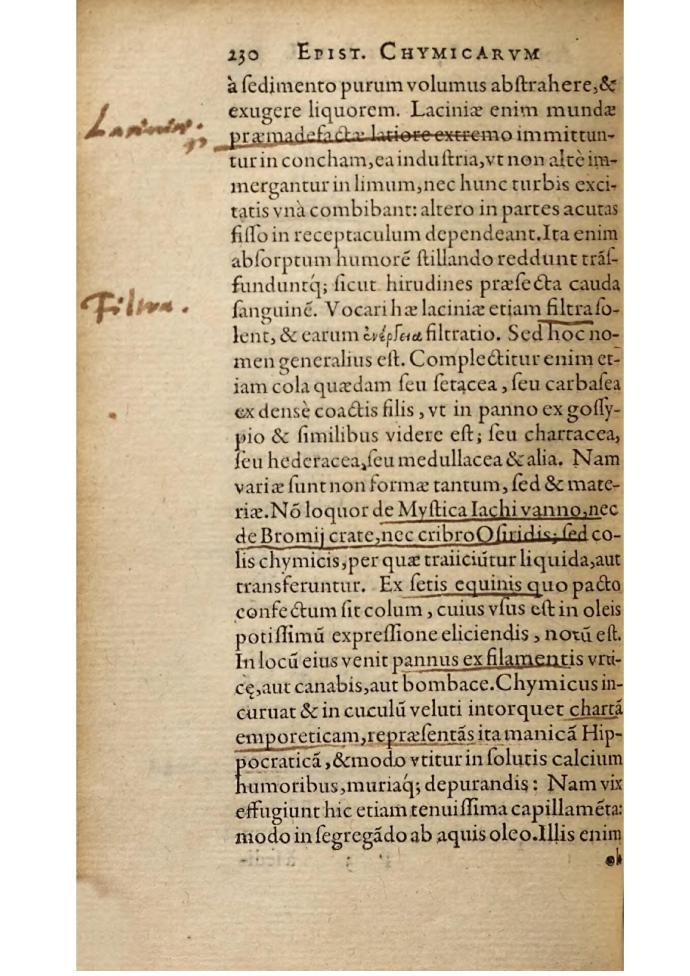 230 EPIST. CHYMICARVM
à sedimento purum volumus abstrahere,&
exugere liquorem. Laciniæ enim mundæ
Laciniæ.
præmadefactæ latiore extremo immittun-
tur in concham,ea industria,vt non altè im-
mergantur in limum,nec hunc turbis exci-
tatis vnà combibant: altero in partes acutas
fisso in receptaculum dependeant.Ita enim
absorptum humorẽ stillando reddunt trãs-
funduntq́; sicut hirudines præsecta cauda
Filtra.
sanguinẽ. Vocari hæ laciniæ etiam filtra so-
lent, & earum ἐνέργεια filtratio. Sed hoc no-
men generalius est. Complectitur enim et-
iam cola quædam seu setacea, seu carbasea
ex densè coactis filis, vt in panno ex gossy-
pio & similibus videre est; seu chartacea,
seu hederacea,seu medullacea & alia. Nam
variæ sunt non formæ tantum, sed & mate-
riæ.Nõ loquor de Mystica Iachi vanno,nec
de Bromij crate,nec cribro Osiridis; sed co-
lis chymicis,per quæ traiiciũtur liquida,aut
transferuntur. Ex setis equinis quo pacto
confectum sit colum, cuius vsus est in oleis
potissimũ expressione eliciendis, notũ est.
In locũ eius venit pannus ex filamentis vrti-
cę,aut canabis,aut bombace.Chymicus in-
curuat & in cucullũ veluti intorquet chartã
emporeticam,repræsentãs ita manicã Hip-
pocraticã,&modo vtitur in solutis calcium
humoribus,muriaq́; depurandis: Nam vix
effugiunt hic etiam tenuissima capillamẽta:
modo in segregãdo ab aquis oleo.Illis enim
ob